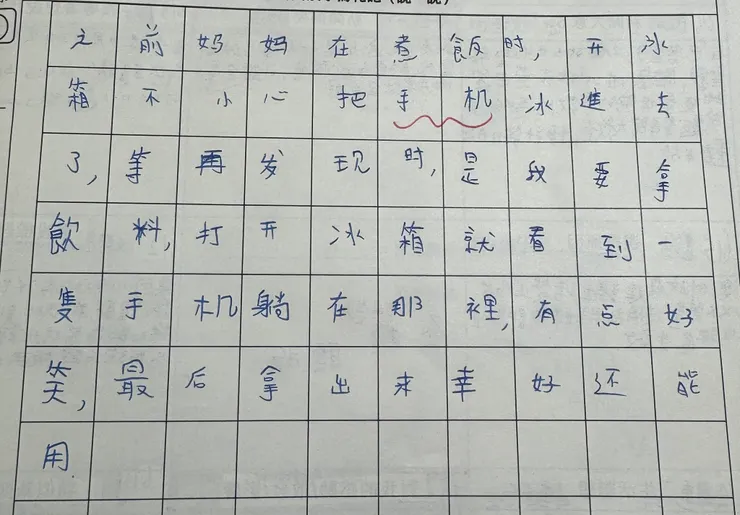 之前妈妈在煮飯时,开冰
箱不小心把手机冰進去
了,等再发现时,是我要拿
飲料,打开冰箱就看到一
隻手机躺在那裡,有点好
笑,最后拿出来幸好还能
用